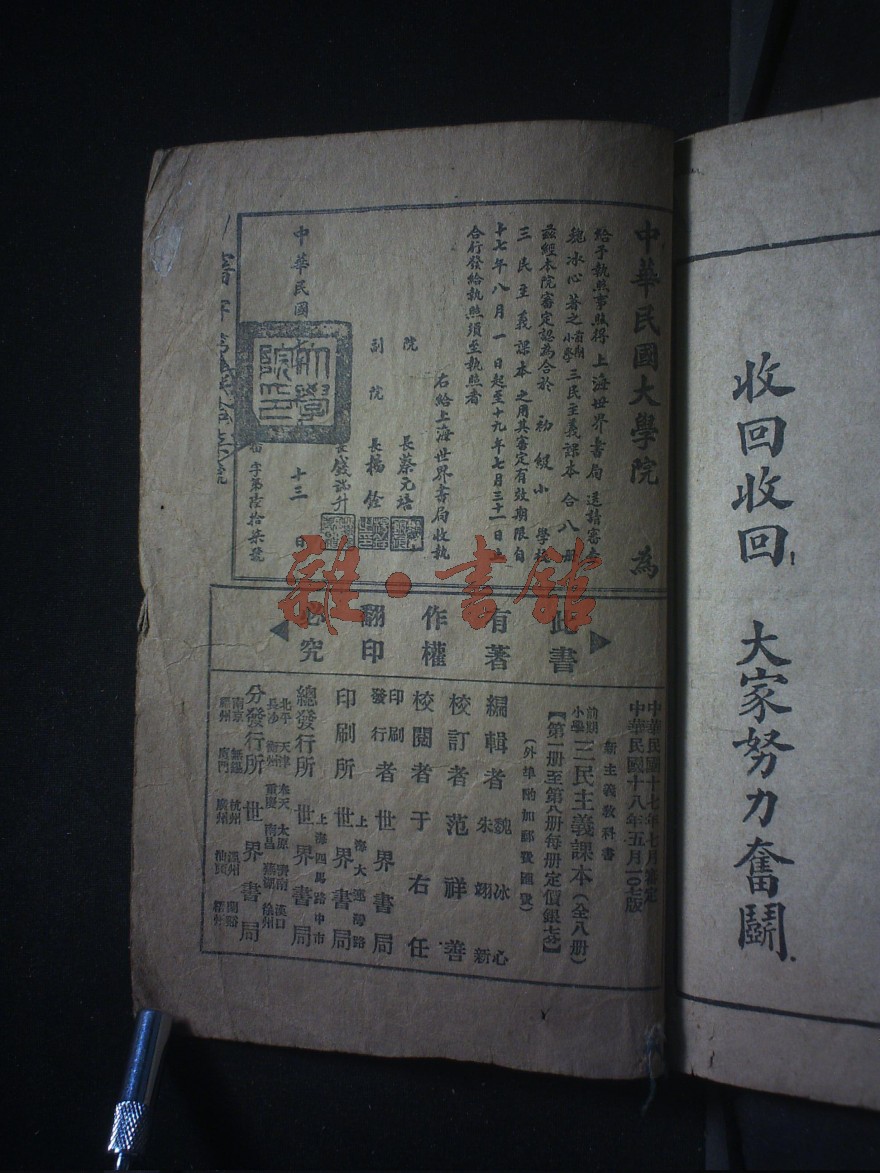 收回收回 大家努力奮鬭
中華民國大學院 為
給予執照事照得 上海世界書局 送請審查
魏冰心著之前期小學三民主義課本 合八册
茲經本院審定認為合於 初級小 學校
三民主義課本 之用其審定有效期限自
十七年八月一日起至十九年七月三十一日止
合行發給執照須至執照者
右給上海世界書局收執
院 長蔡元培
副院 長楊銓
中華民國
十三 日
字第陸拾柒號
大學院印
此書有著作權翻印必究
中華民國十七年七月審定
中華民國十八年五月一〇七版
新主義教科書
前期小學 三民主義課本(全八册)
【第一册至第八册每册定價銀七分】
(外埠酌加郵費匯費)
編輯者 魏冰心 朱翊新
校訂者 范祥善
校閱者 于右任
印刷發行者 世界書局
上海大連灣路
印刷所 世界書局
上海四馬路中市
總發行所 世界書局
北平 天津 奉天 太原 濟南 漢口
長沙 衢州 重慶 南昌 蕪湖 徐州
分發行所 世界書局
南京 無錫 杭州 溫州
廈門 廣州 汕頭
雜·書館